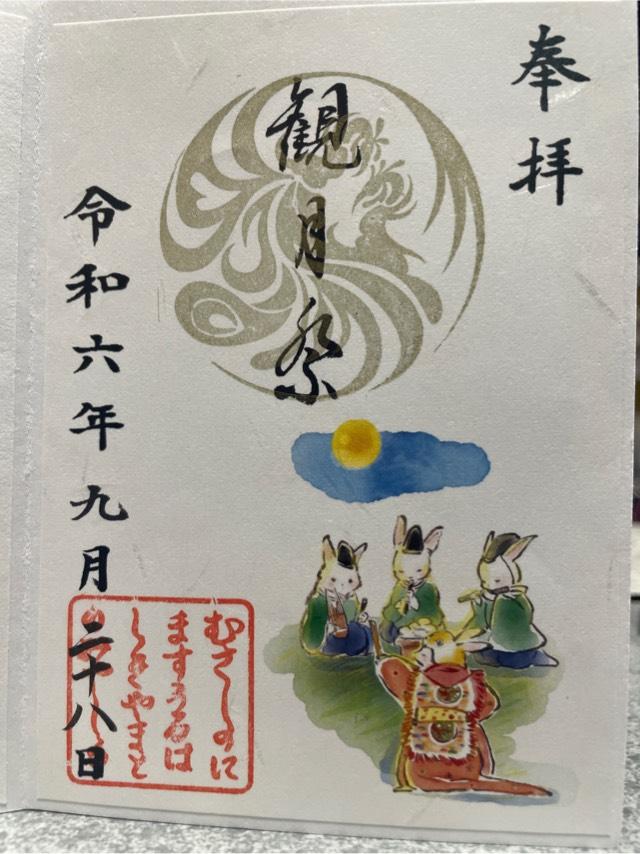 奉拝
観月祭
むさしのに
ますうるは
しきやまと
令和六年九月二十八日